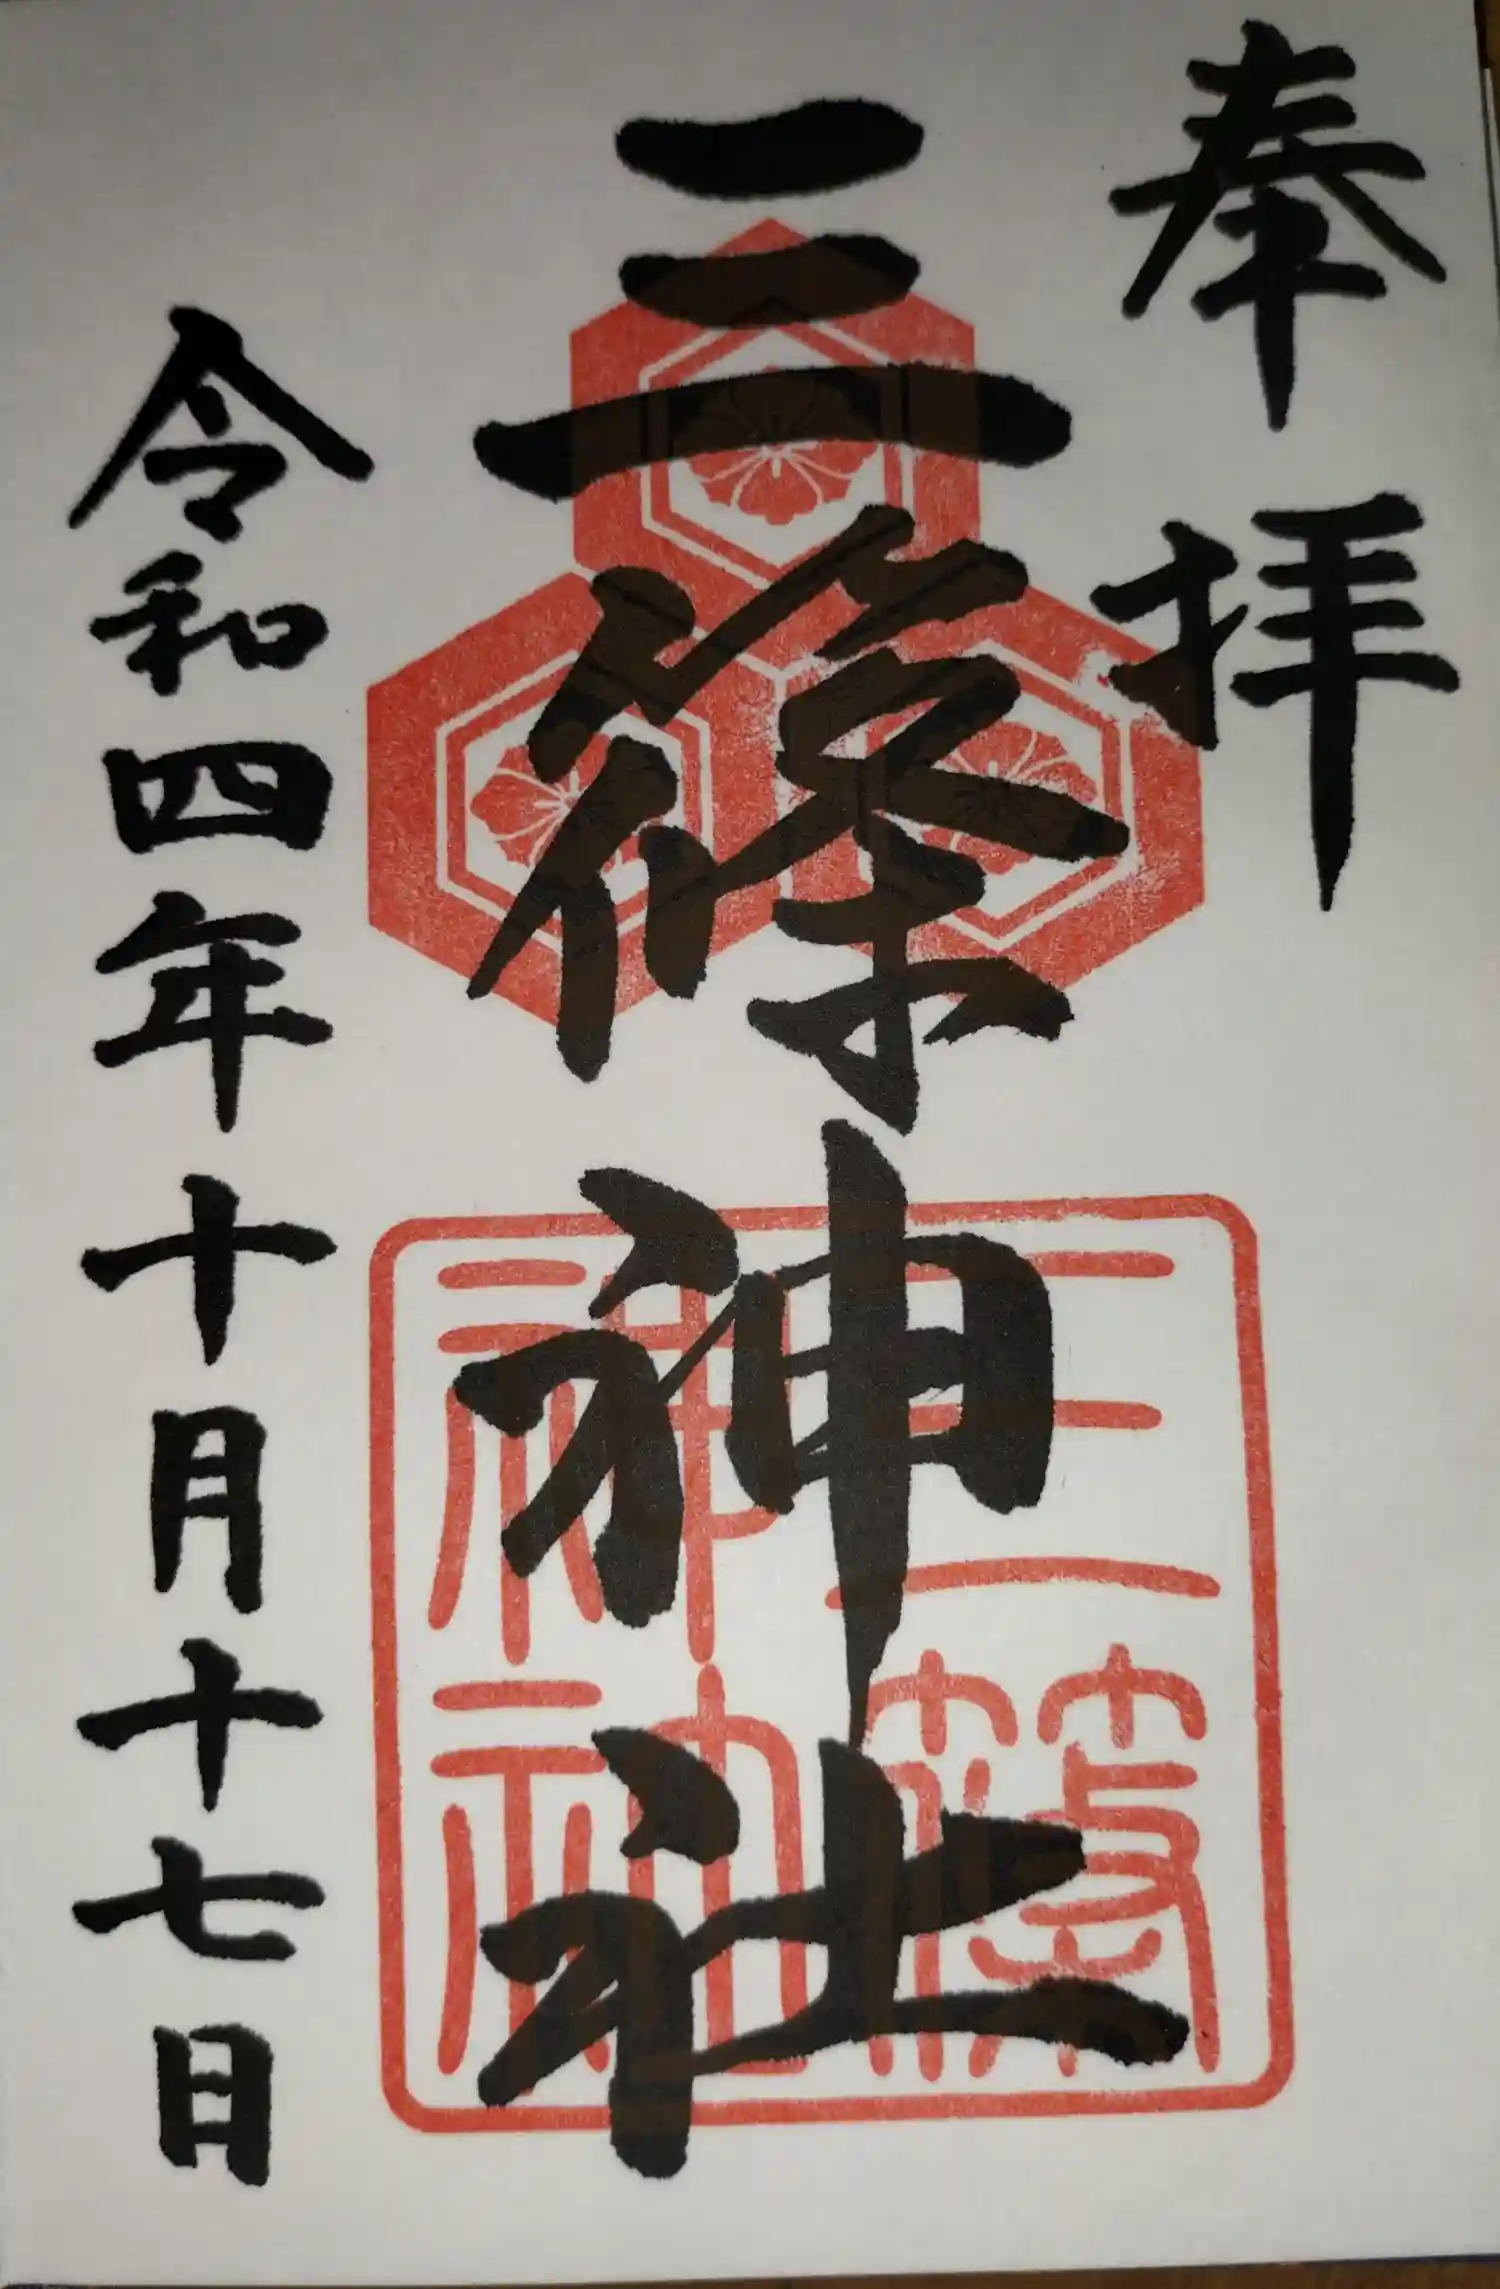 奉拝
三篠神社
令和四年十月十七日
三篠
神社